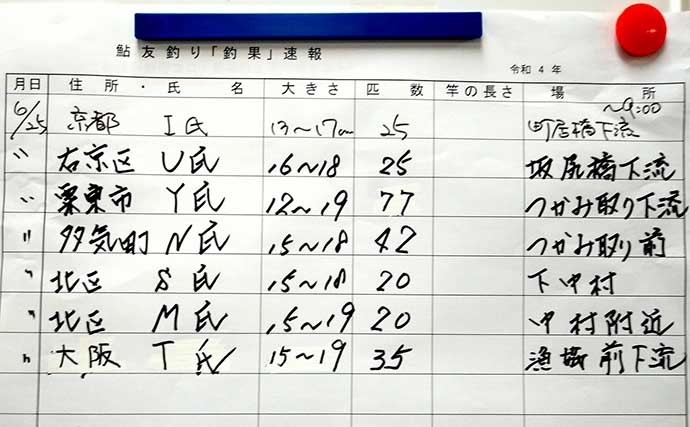 鮎友釣り「釣果」速報
令和 4 年
月日 住所・氏名 大きさ 匹数 竿の長さ 場所
~9:00
6/25 京都 I氏 13~17cm 25 町居橋下流
〃 右京区 U氏 16~18 25 坂尻橋下流
〃 栗東市 Y氏 12~19 77 つかみ取り下流
〃 多気町 N氏 15~18 42 つかみ取り前
〃 北区 S氏 15~18 20 下中村
〃 北区 M氏 15~19 20 中村附近
〃 大阪 T氏 15~19 35 漁協前下流